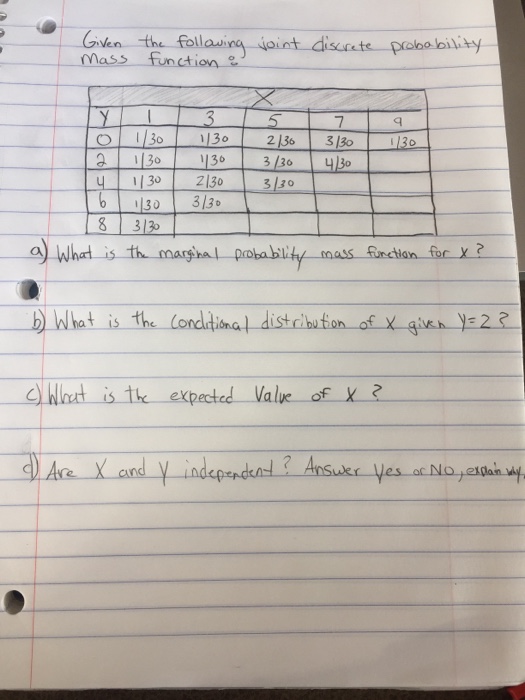 Given the following joint discrete probability
Mass function :
X
Y 1 3 5 7 9
0 1/30 1/30 2/30 3/30 1/30
2 1/30 1/30 3/30 4/30
4 1/30 2/30 3/30
6 1/30 3/30
8 3/30
a) What is the marginal probability mass function for x ?
b) What is the conditional distribution of x given y=2 ?
c) What is the expected Value of x ?
d) Are X and y independent ? Answer Yes or NO, explain why.